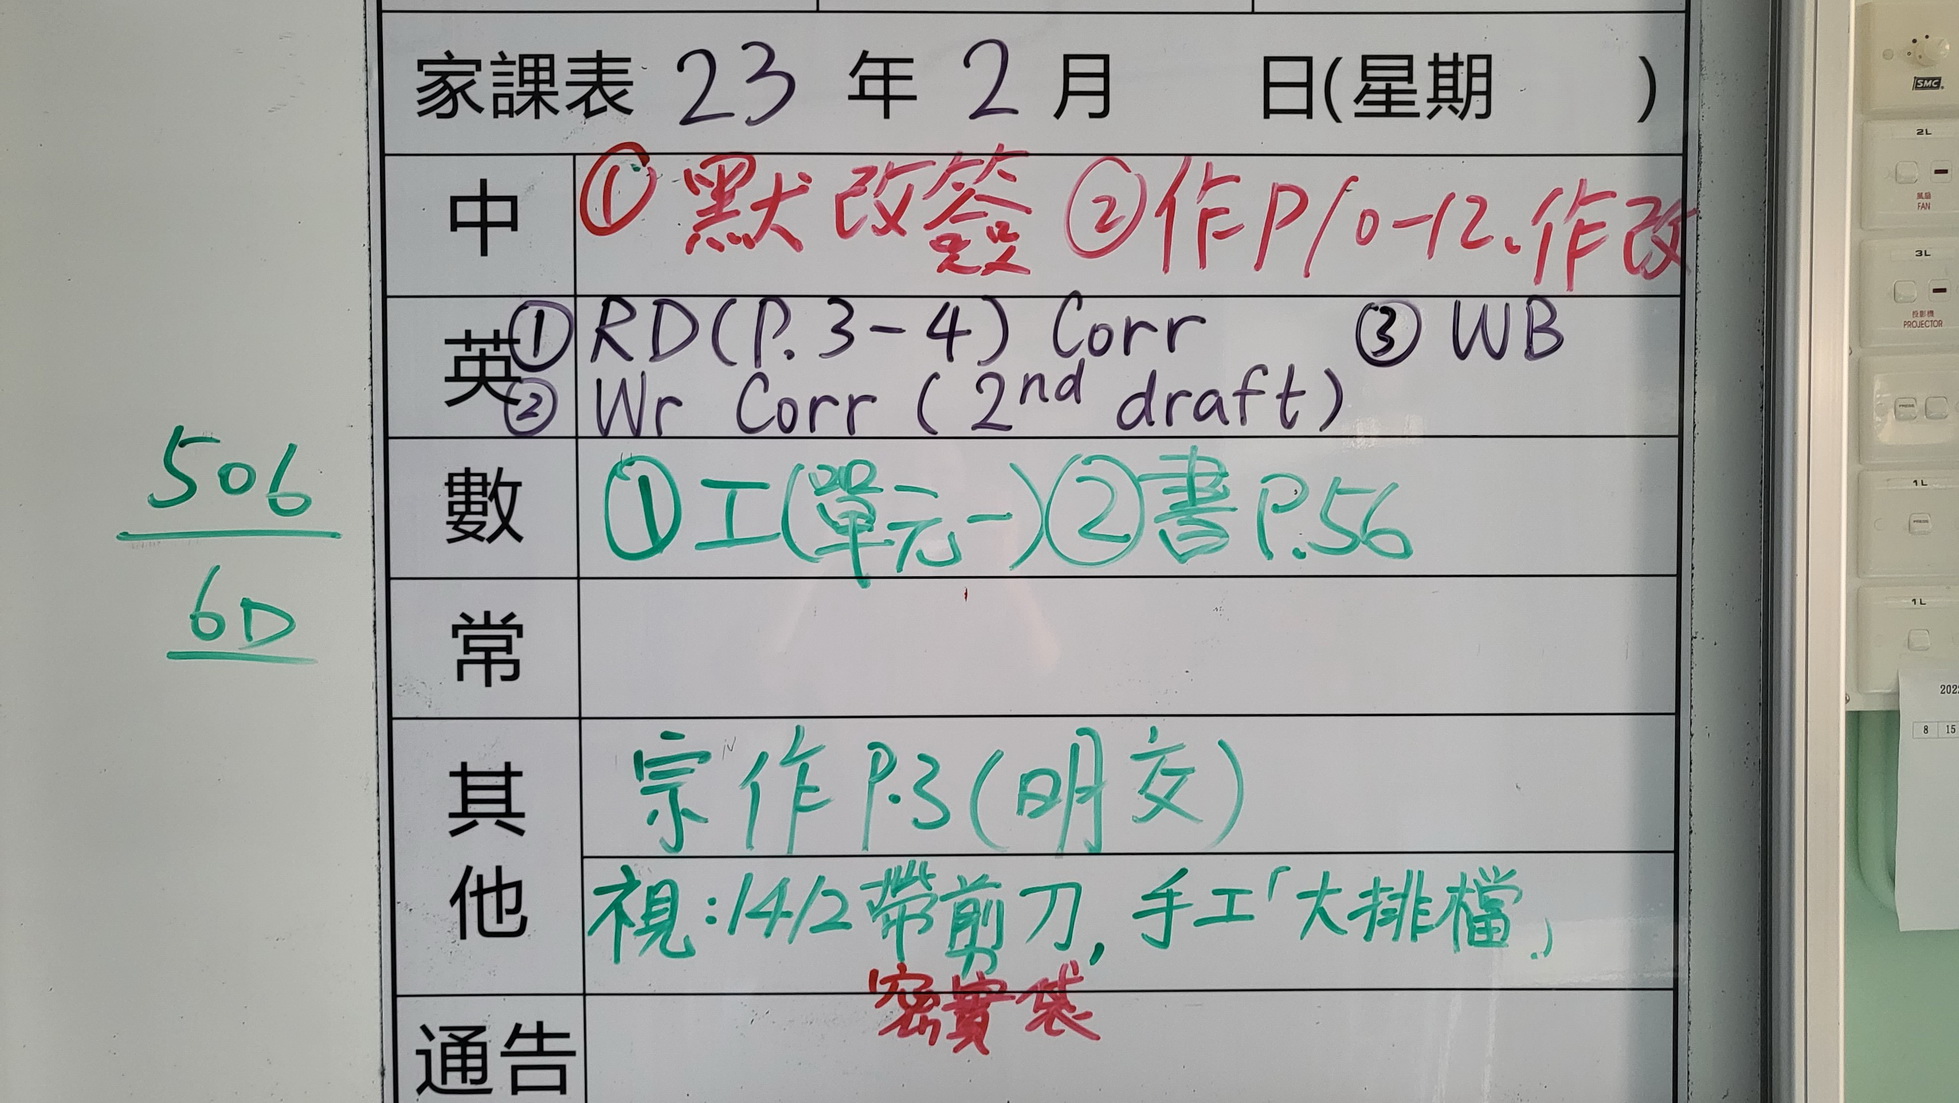 家課表 23 年 2 月 日(星期 )
中 ① 默改簽 ②作P10-12.作改
英 ① RD(P.3-4) Corr ③ WB
② Wr Corr (2nd draft)
數 ①工(單元一)②書P.56
506
6D
常
其他 宗作P.3(明交)
視:14/2帶剪刀,手工「大排檔」
密實袋
通告
SMC
2L
風扇
FAN
3L
投影機
PROJECTOR
1L
1L
202
8 15